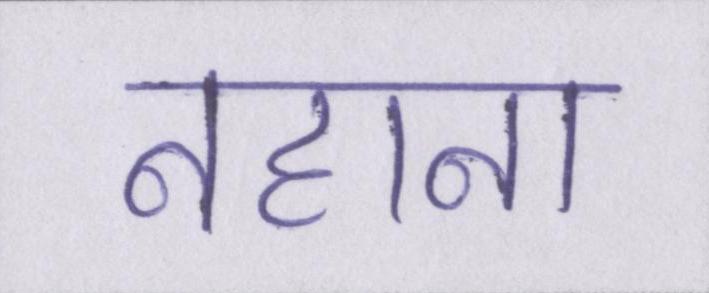 नहाना